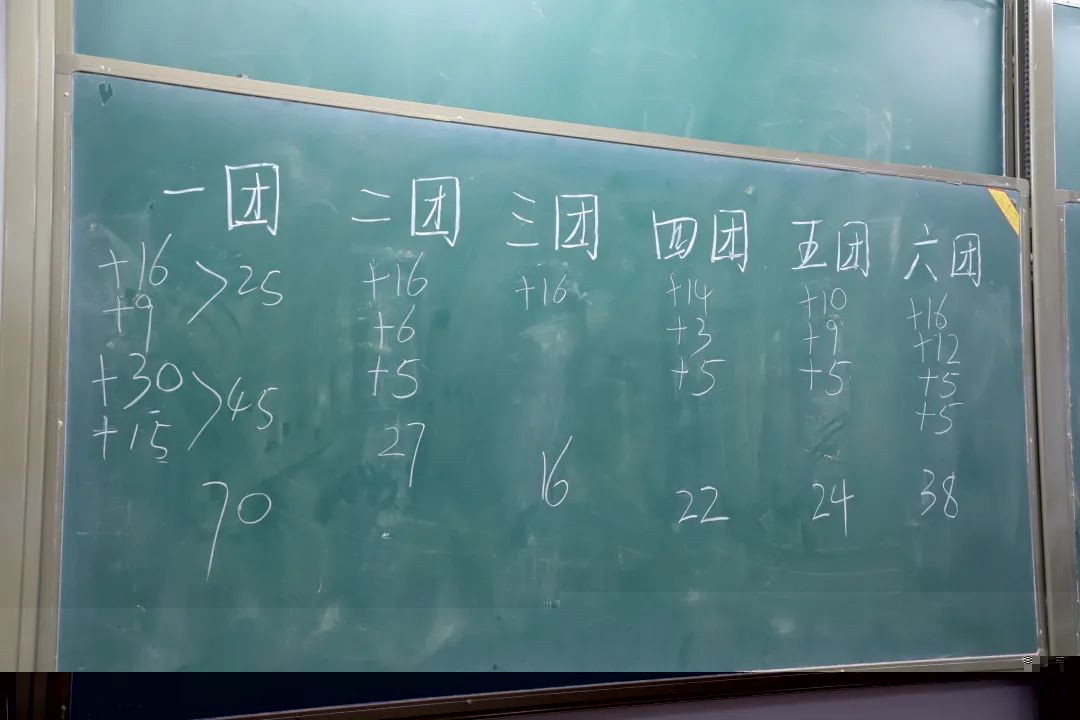 一团
+16
+9
>25
+30
+15
>45
70
二团
+16
+6
+5
27
三团
+16
16
四团
+14
+3
+5
22
五团
+10
+9
+5
24
六团
+16
+12
+5
+5
38